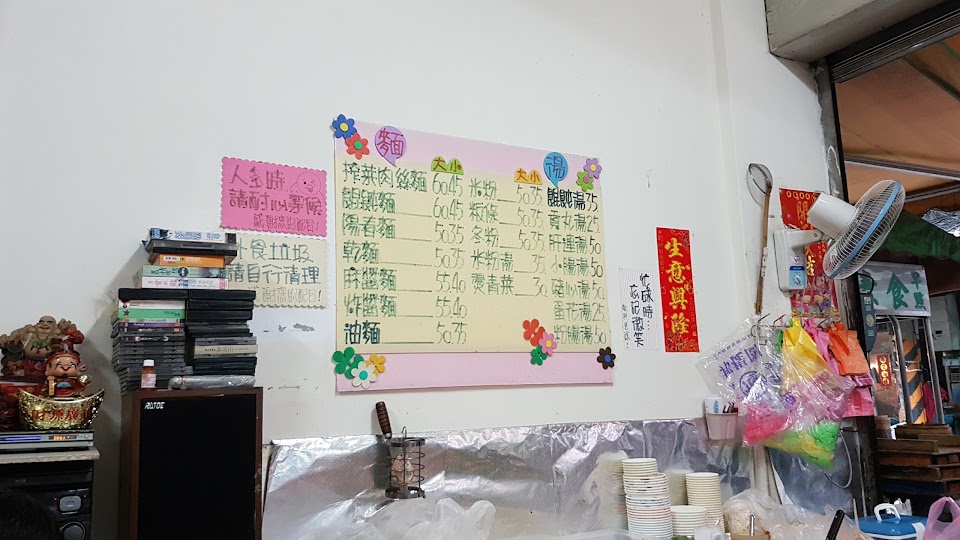 麵
大 小
榨菜肉絲麵 60 45
餛飩麵 60 45
陽春麵 50 35
乾麵 50 35
麻醬麵 55 40
炸醬麵 55 40
油麵 50 35
大 小
米粉 50 35
粄條 50 35
冬粉 50 35
米粉湯 35
燙青菜 30
湯
餛飩湯 75
貢丸湯 25
肝連湯 50
小腸湯 50
豬心湯 50
蛋花湯 25
粉腸湯 50
人多時
外食垃圾
請自行清理
忙碌時…
忘記微笑
生意興隆
食